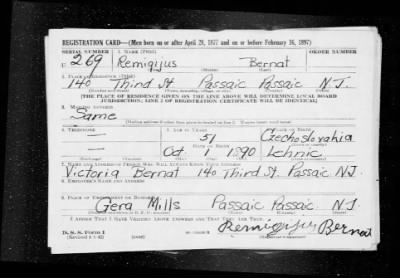 REGISTRATION CARD—(Men born on or after April 28, 1877 and on or before February 16, 1897)
SERIAL NUMBER 1. NAME (Print) ORDER NUMBER
U 269 Remigijus Bernat
2. PLACE OF RESIDENCE (Print)
140 Third St. Passaic Passaic N.J.
[THE PLACE OF RESIDENCE GIVEN ON THE LINE ABOVE WILL DETERMINE LOCAL BOARD
JURISDICTION; LINE 2 OF REGISTRATION CERTIFICATE WILL BE IDENTICAL]
3. MAILING ADDRESS
Same
4. TELEPHONE 5. AGE IN YEARS 6. PLACE OF BIRTH
— 51 Czechoslovakia
DATE OF BIRTH
— Oct 1 1890 Lehnic
7. NAME AND ADDRESS OF PERSON WHO WILL ALWAYS KNOW YOUR ADDRESS
Victoria Bernat 140 Third St. Passaic N.J.
8. EMPLOYER'S NAME AND ADDRESS
9. PLACE OF EMPLOYMENT OR BUSINESS
Gera Mills Passaic Passaic N.J.
I AFFIRM THAT I HAVE VERIFIED ABOVE ANSWERS AND THAT THEY ARE TRUE.
D. S. S. Form 1
(Revised 4-1-42) Remigijus Bernat